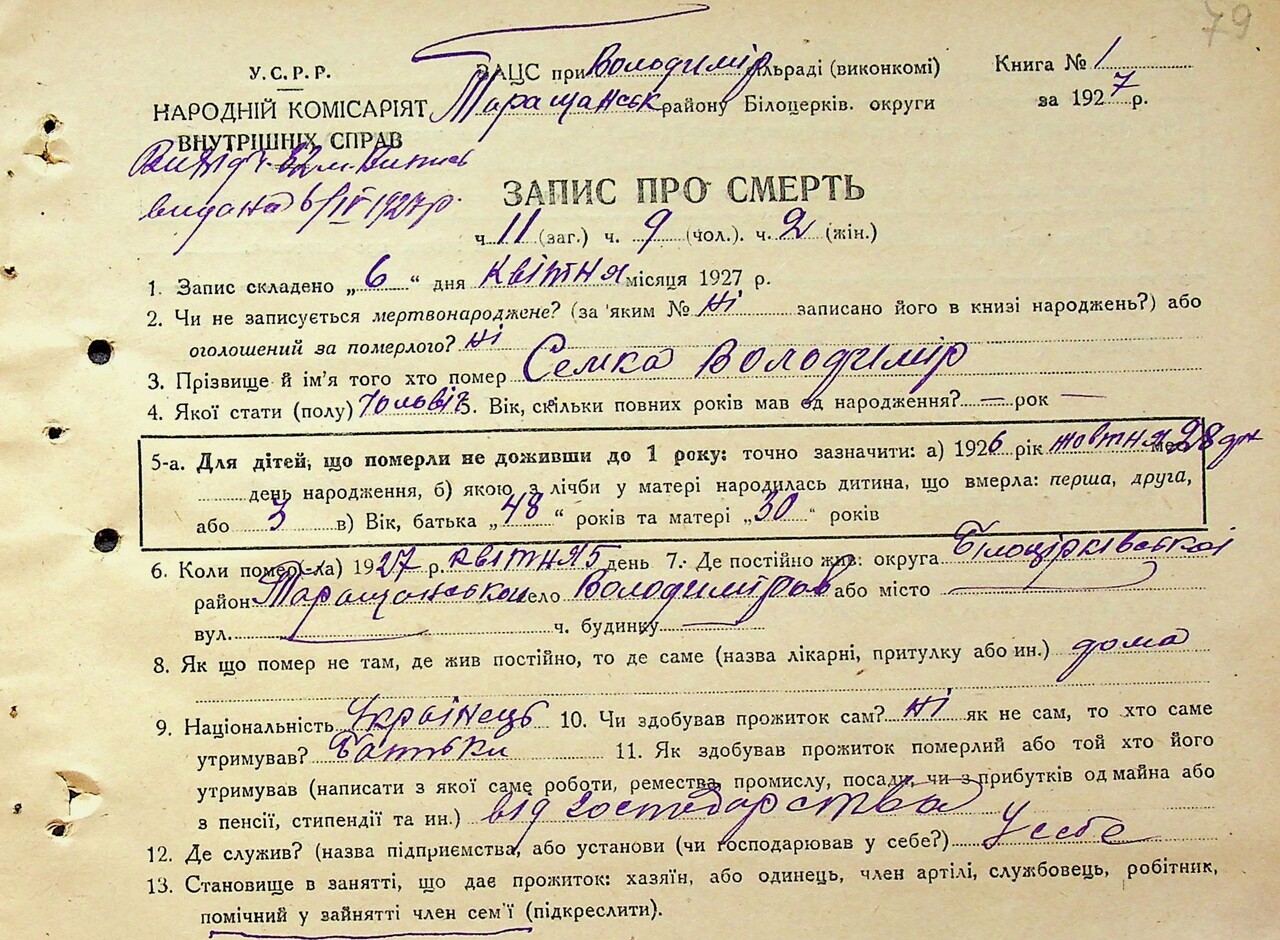 79
У.С.Р.Р. ЗАЦС при Володимір сільраді (виконкомі) Книга № 1
НАРОДНІЙ КОМІСАРІЯТ Таращанськ району Білоцерків. округи за 1927 р.
ВНУТРІШНІХ СПРАВ
видана 6/IV 1927 р.
ЗАПИС ПРО СМЕРТЬ
ч. 11 (заг.) ч. 9 (чол.). ч. 2 (жін.)
1. Запис складено „6“ дня квітня місяця 1927 р.
2. Чи не записується мертвонароджене? (за яким № ні записано його в книзі народжень?) або
оголошений за померлого? ні
3. Прізвище й ім’я того хто помер Семка Володимір
4. Якої стати (полу) чоловіч 5. Вік, скільки повних років мав од народження? — рок —
5-а. Для дітей, що померли не доживши до 1 року: точно зазначити: а) 1926 рік жовтня 28 дн
день народження, б) якою з лічби у матері народилась дитина, що вмерла: перша, друга,
або 3 в) Вік, батька „48“ років та матері „30“ років
6. Коли помер(ла) 1927 р. квітня 5 день 7. Де постійно жив: округа Білоцірківської
район Таращанськои село Володиміров або місто —
вул. — ч. будинку —
8. Як що помер не там, де жив постійно, то де саме (назва лікарні, притулку або ин.) дома
9. Національність Україньць 10. Чи здобував прожиток сам? ні як не сам, то хто саме
утримував? Батьки 11. Як здобував прожиток померлий або той хто його
утримував (написати з якої саме роботи, ремества, промислу, посади, чи з прибутків од майна або
з пенсії, стипендії та ин.) від господарства
12. Де служив? (назва підприємства, або установи (чи господарював у себе?) У себе
13. Становище в занятті, що дає прожиток: хазяїн, або одинець, член артілі, службовець, робітник,
помічний у зайнятті член сем’ї (підкреслити).